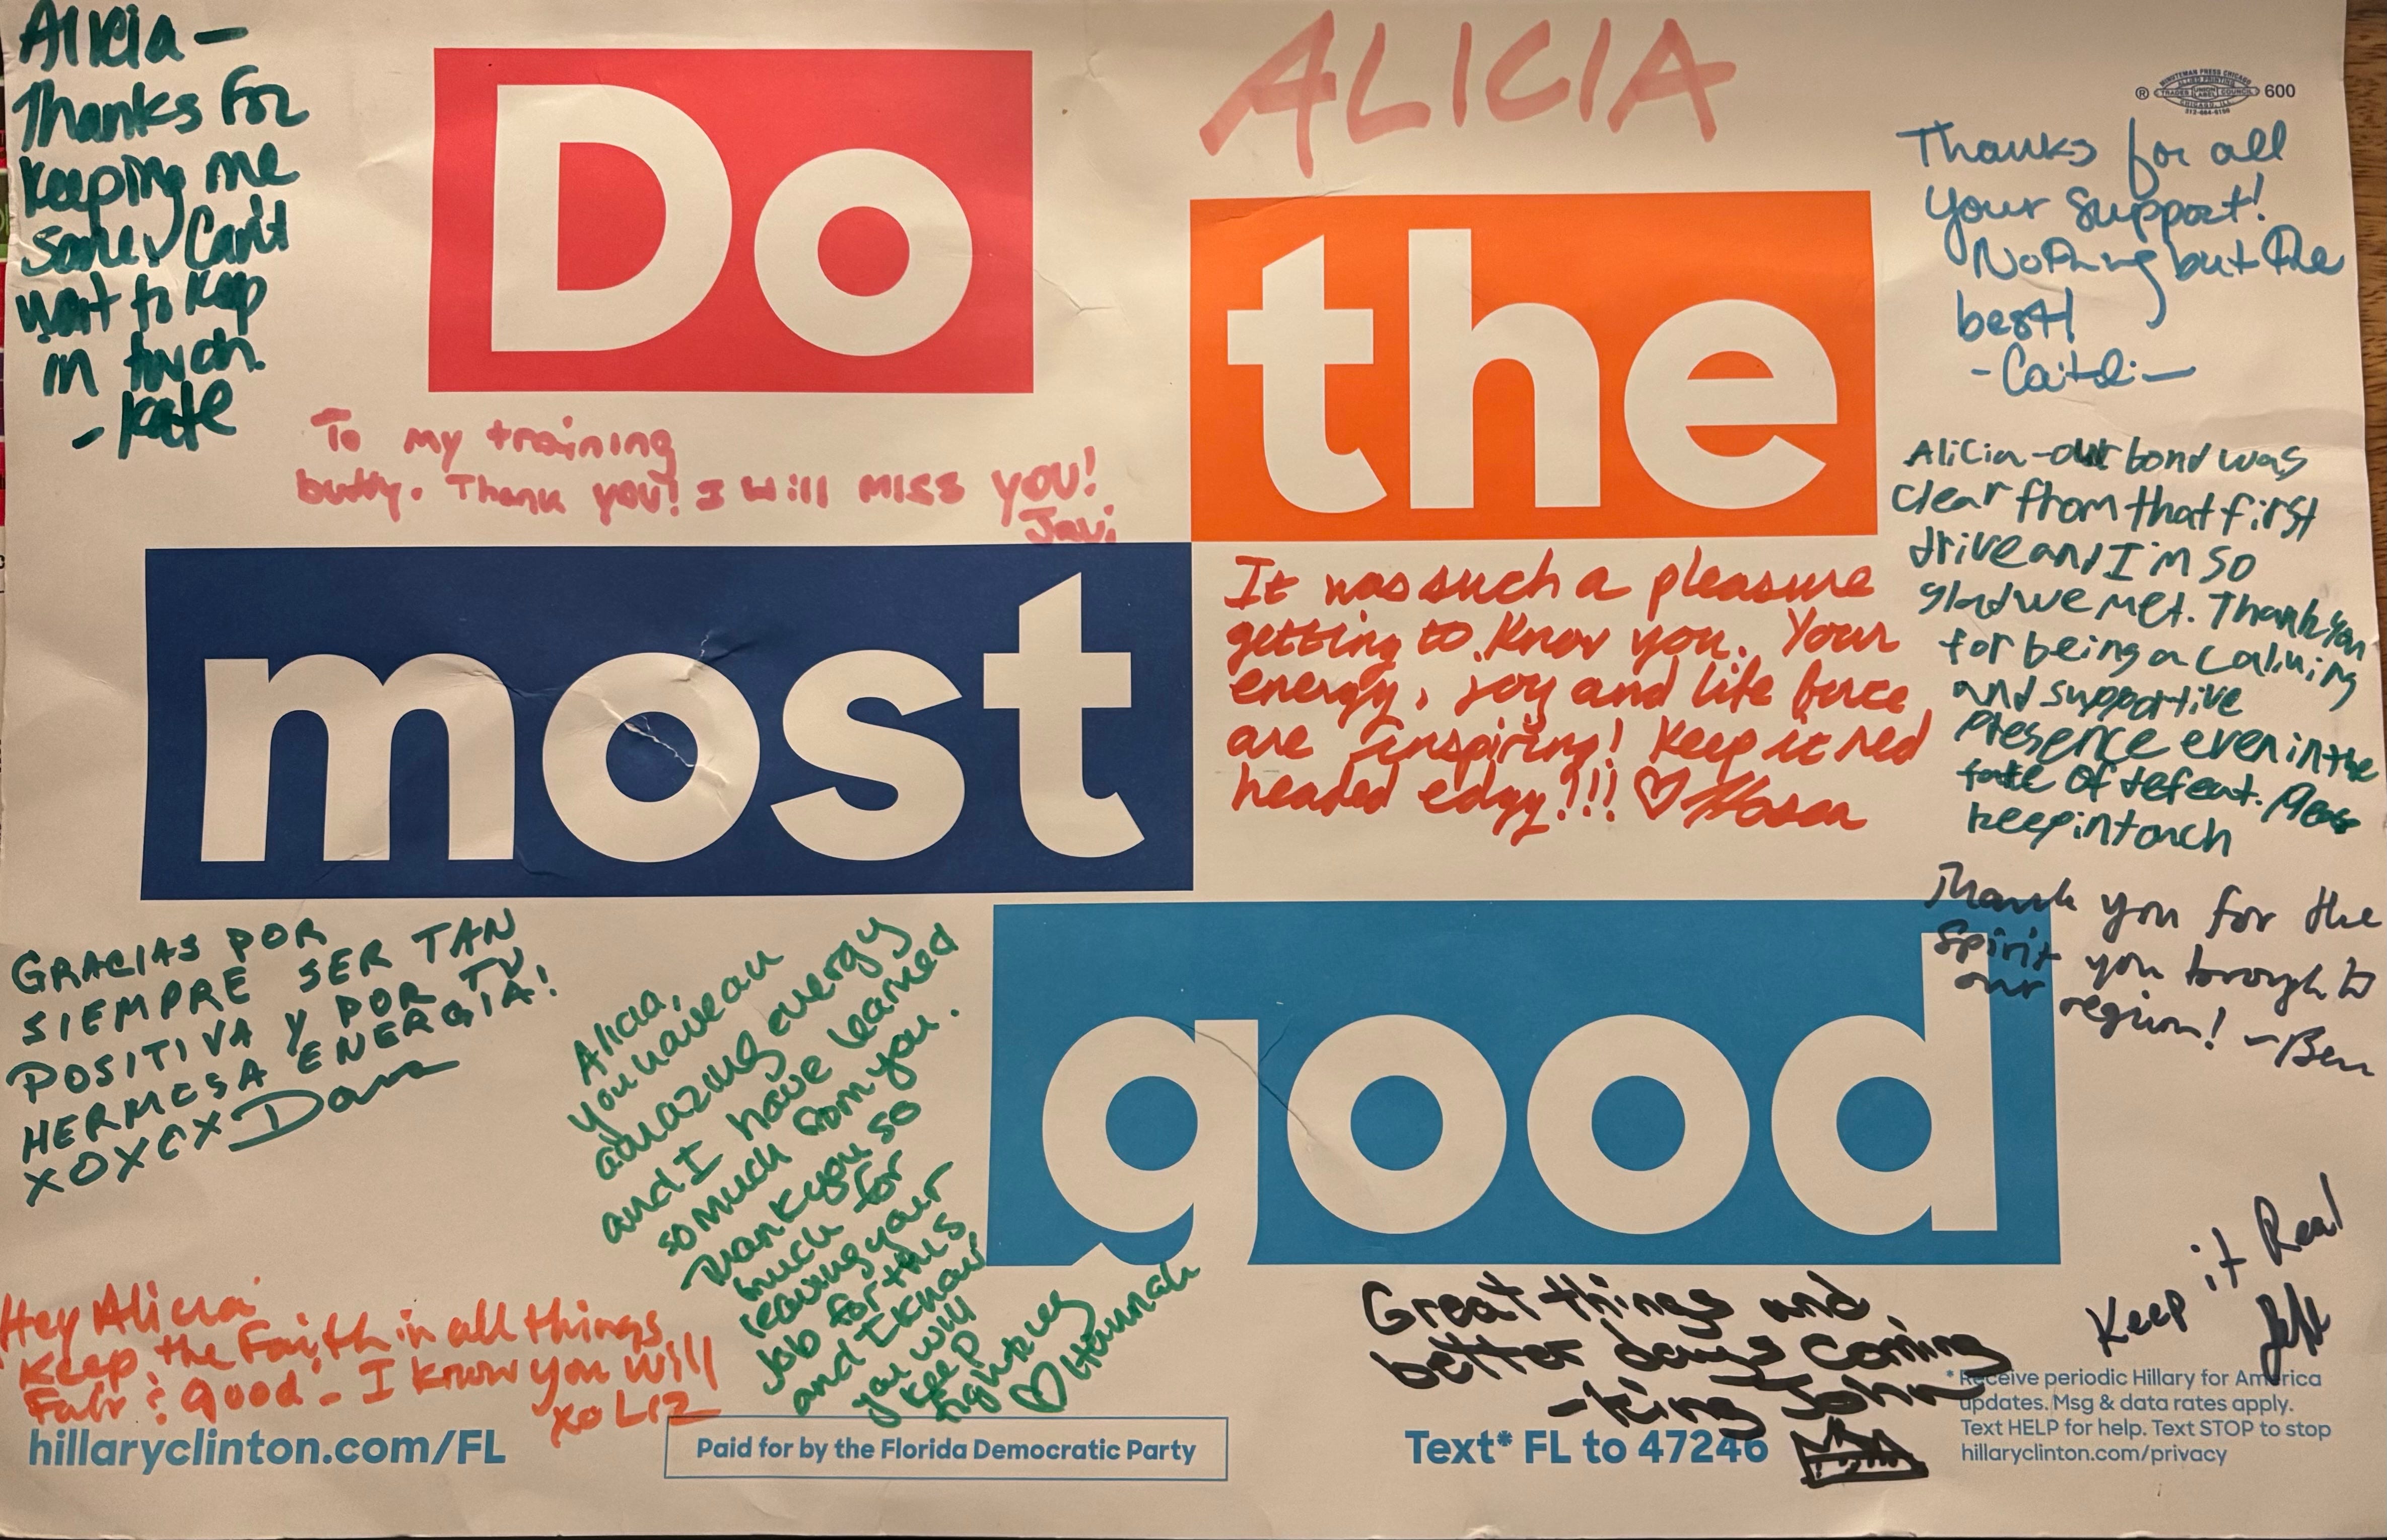 Alicia -
Thanks For
keeping me
sane. Can't
wait to keep
in touch.
- Kate
Do
ALICIA
MINUTEMAN PRESS CHICAGO
ALLIED PRINTING
TRADES UNION LABEL COUNCIL
CHICAGO, ILL.
312-664-6150
® 600
the
Thanks for all
your support!
Nothing but the
best!
- Caitlin
To my training
buddy. Thank you! I will miss you!
Javi
Alicia - our bond was
clear from that first
drive and I'm so
glad we met. Thank you
for being a calming
and supportive
presence even in the
face of defeat. Please
keep in touch
most
It was such a pleasure
getting to know you. Your
energy, joy and life force
are inspiring! Keep it red
headed edgy!!! ♡
Thank you for the
spirit you brought to
our region! - Ben
good
GRACIAS POR
SIEMPRE SER TAN
POSITIVA Y POR TU
HERMOSA ENERGIA!
XOXOX
Alicia,
you have an
amazing energy
and I have learned
so much from you.
Thank you so
much for
leaving your
job for this
and I know
you will
keep
fighting
♡ Hannah
Hey Alicia
Keep the Faith in all things
Fair & good - I know you will
xo Liz
Great things and
better days coming
- King John
Keep it Real
Jeff
hillaryclinton.com/FL
Paid for by the Florida Democratic Party
Text* FL to 47246
* Receive periodic Hillary for America
updates. Msg & data rates apply.
Text HELP for help. Text STOP to stop
hillaryclinton.com/privacy